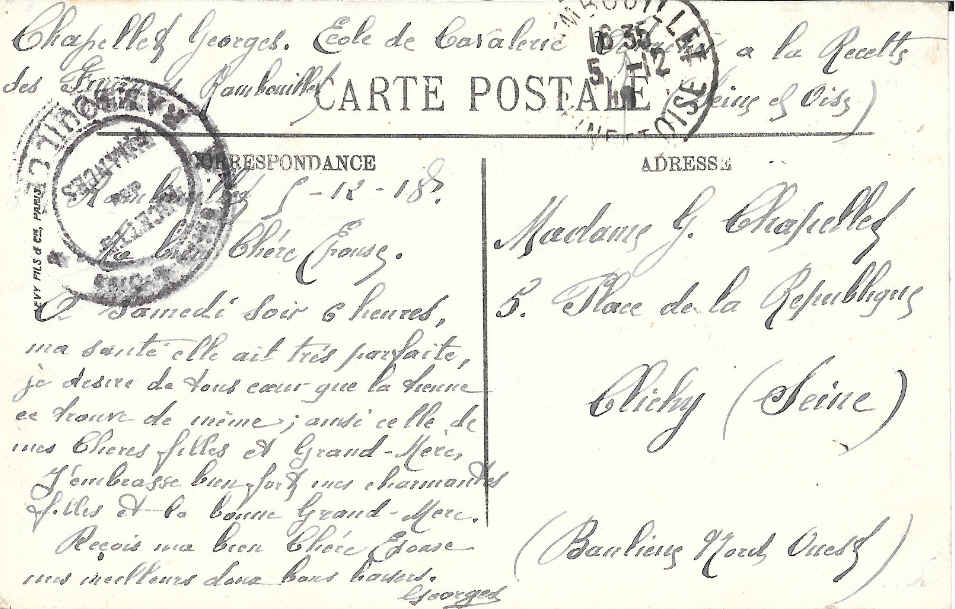 Chapellet Georges. Ecole de Cavalerie à la Recette
des Rambouillet (Seine et Oise)
CARTE POSTALE
MBOUILLET
16 35
5 - 12
18
ET OISE
CORRESPONDANCE
ADRESSE
RAMBOUILLET
FINANCES
DES
RECETTE
LEVY FILS & Cie, PARIS
Rambouillet 5-12-18.
Ma bien Chère Epouse.
A Samedi soir 6 heures,
ma santé elle ait très parfaite,
je desire de tous cœur que la tienne
ce trouve de même; ainsi celle de
mes Cheres filles et Grand-Mère,
J'embrasse bien fort mes charmantes
filles et la bonne Grand-Mere.
Reçois ma bien Chère Epouse
mes meilleurs doux bons baisers.
Georges
Madame G. Chapellet
5. Place de la Republique
Clichy (Seine)
(Banlieue Nord Ouest)